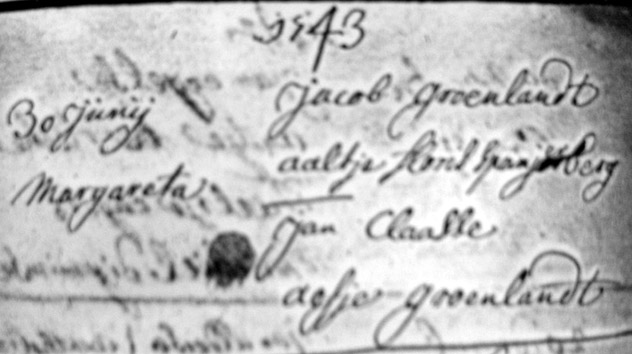 1743
30 Junij
Margareta
Jacob Groenlandt
aaltje Spanjerberg
Jan Claasse
aefje Groenlandt